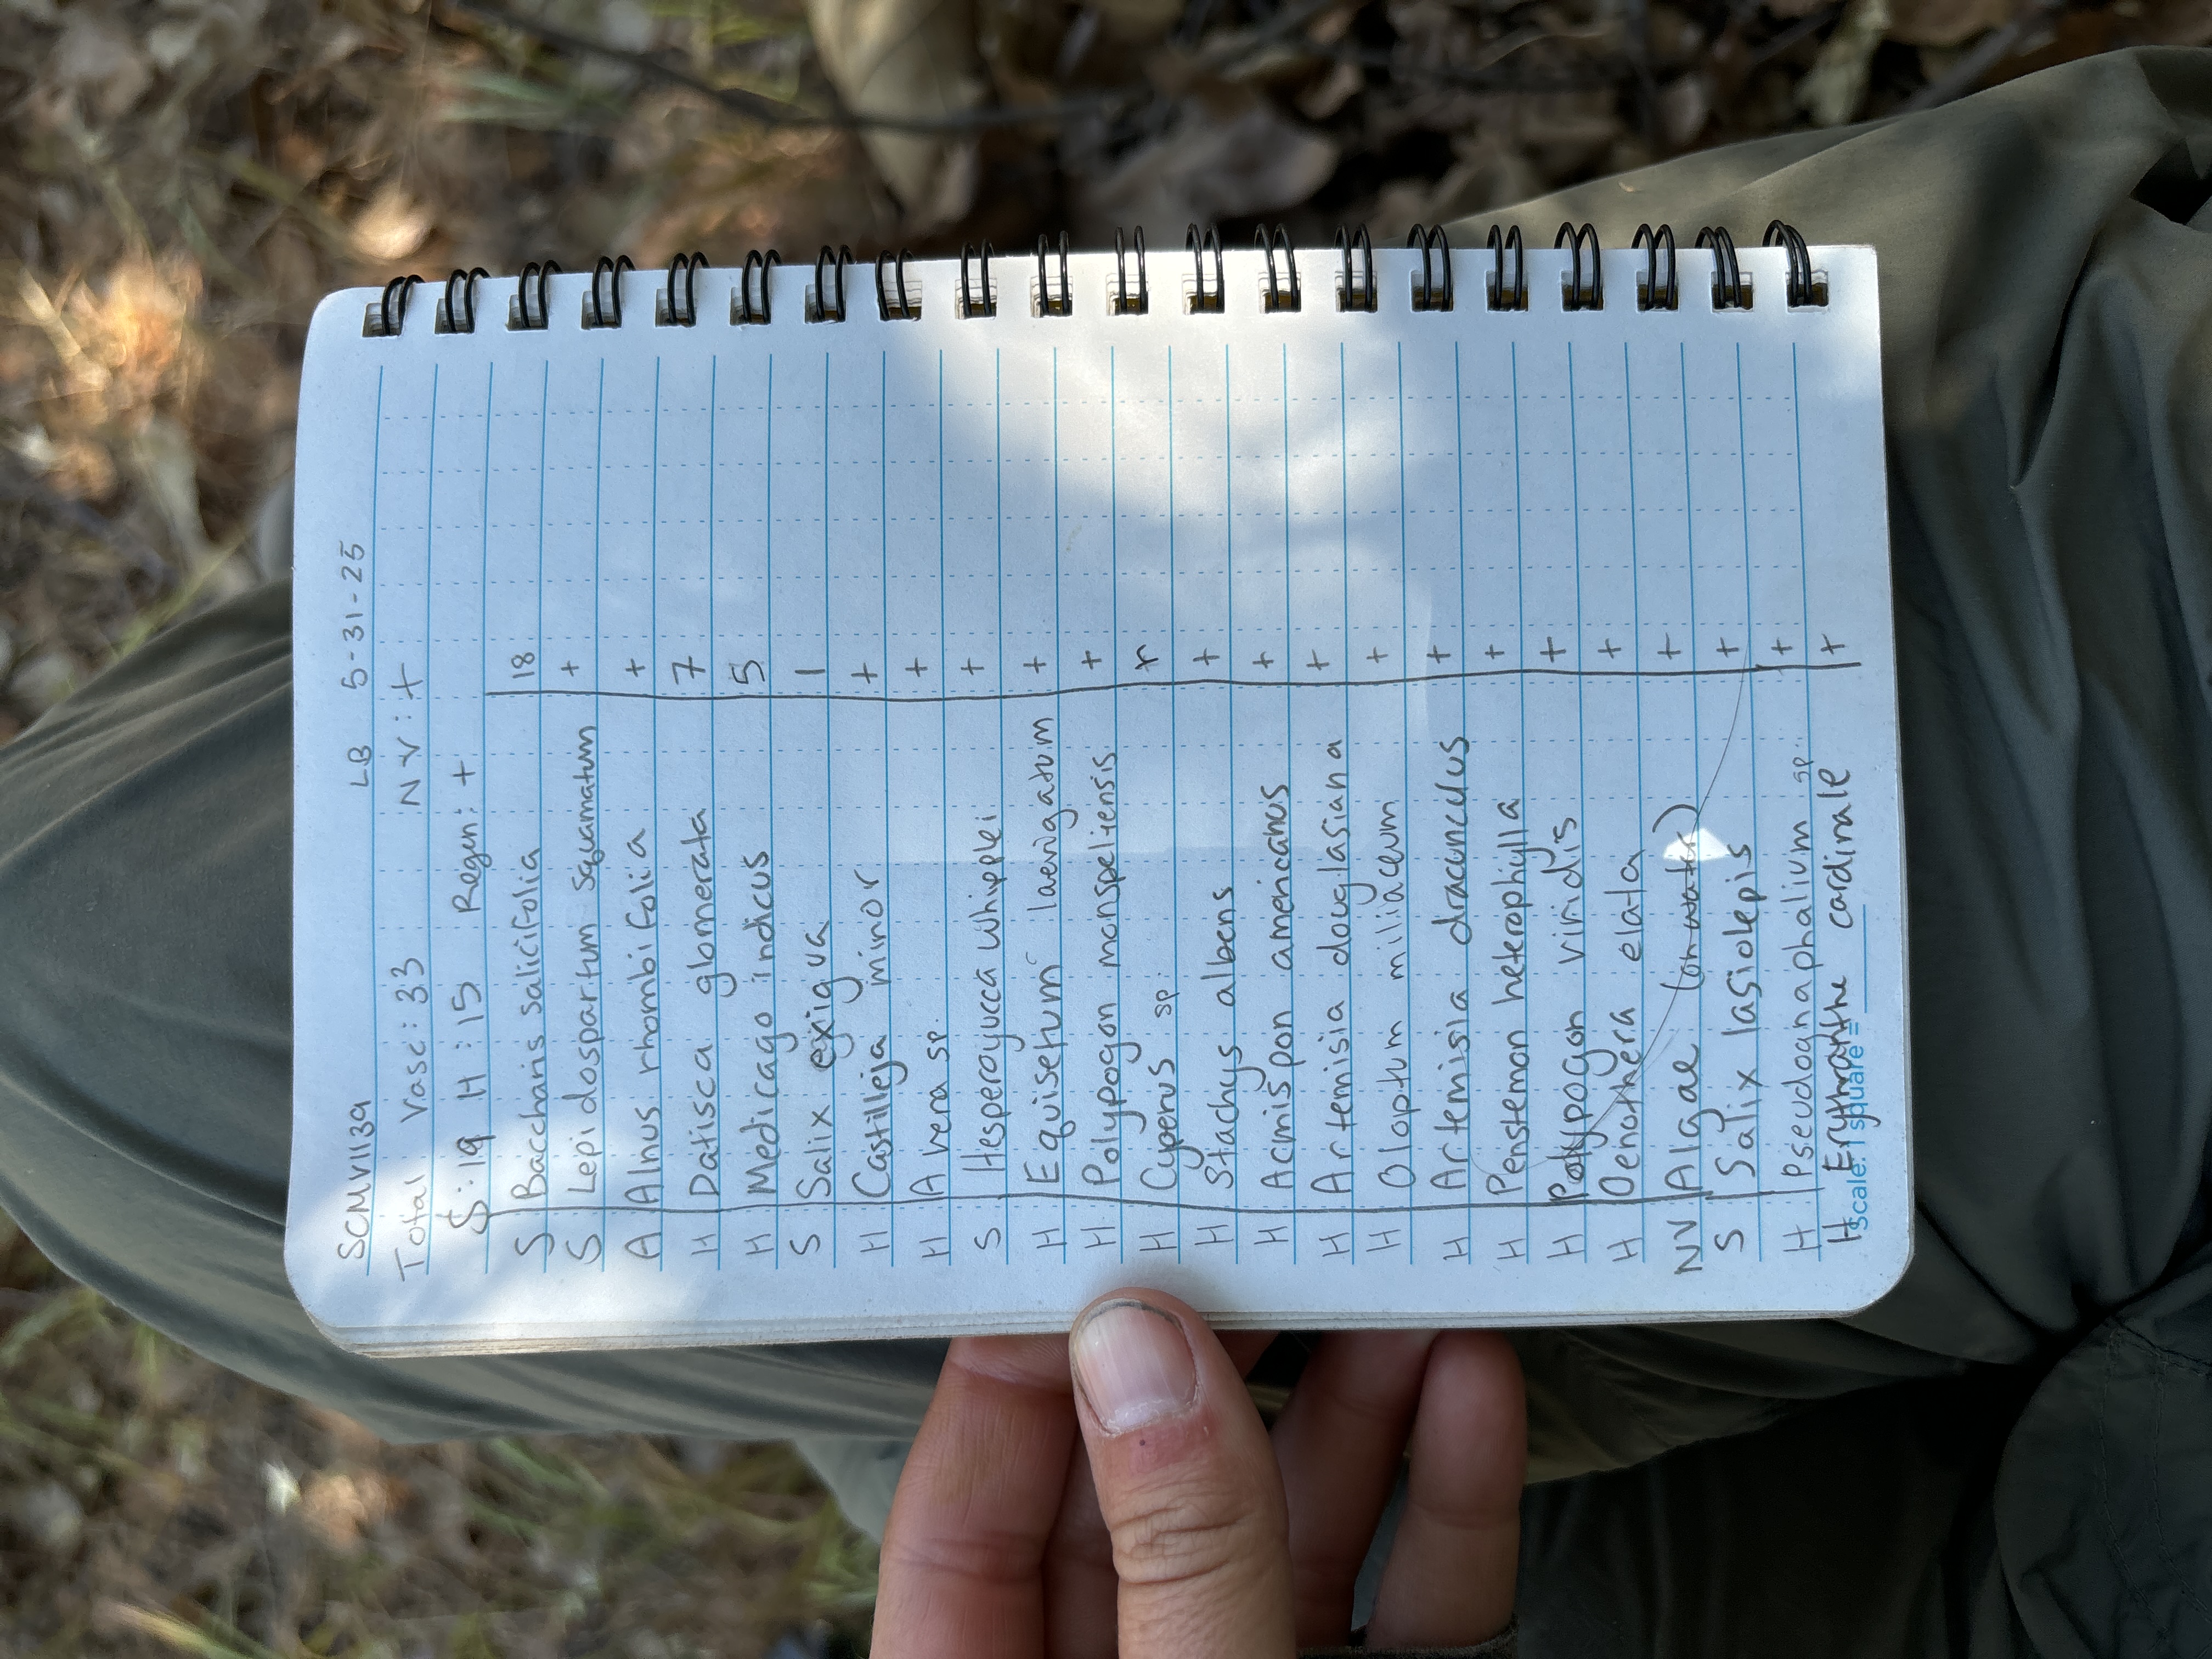 SCMV1139 LB 5-31-25
Total Vasc: 33 NV: +
S: 19 H: 15 Regen: +
S Baccharis salicifolia 18
S Lepidospartum squamatum +
A Alnus rhombifolia +
H Datisca glomerata 7
H Medicago indicus 5
S Salix exigua 1
H Castilleja minor +
H Avena sp. +
S Hesperoyucca whipplei +
H Equisetum laevigatum +
H Polypogon monspeliensis +
H Cyperus sp. r
H Stachys albens +
H Acmispon americanus +
H Artemisia douglasiana +
H Oloptum miliaceum +
H Artemisia dracunculus +
H Penstemon heterophylla +
H Polypogon viridis +
H Oenothera elata +
NV Algae (on water) +
S Salix lasiolepis +
H Pseudognaphalium sp. +
H Erythranthe cardinale +
Scale: 1 square =